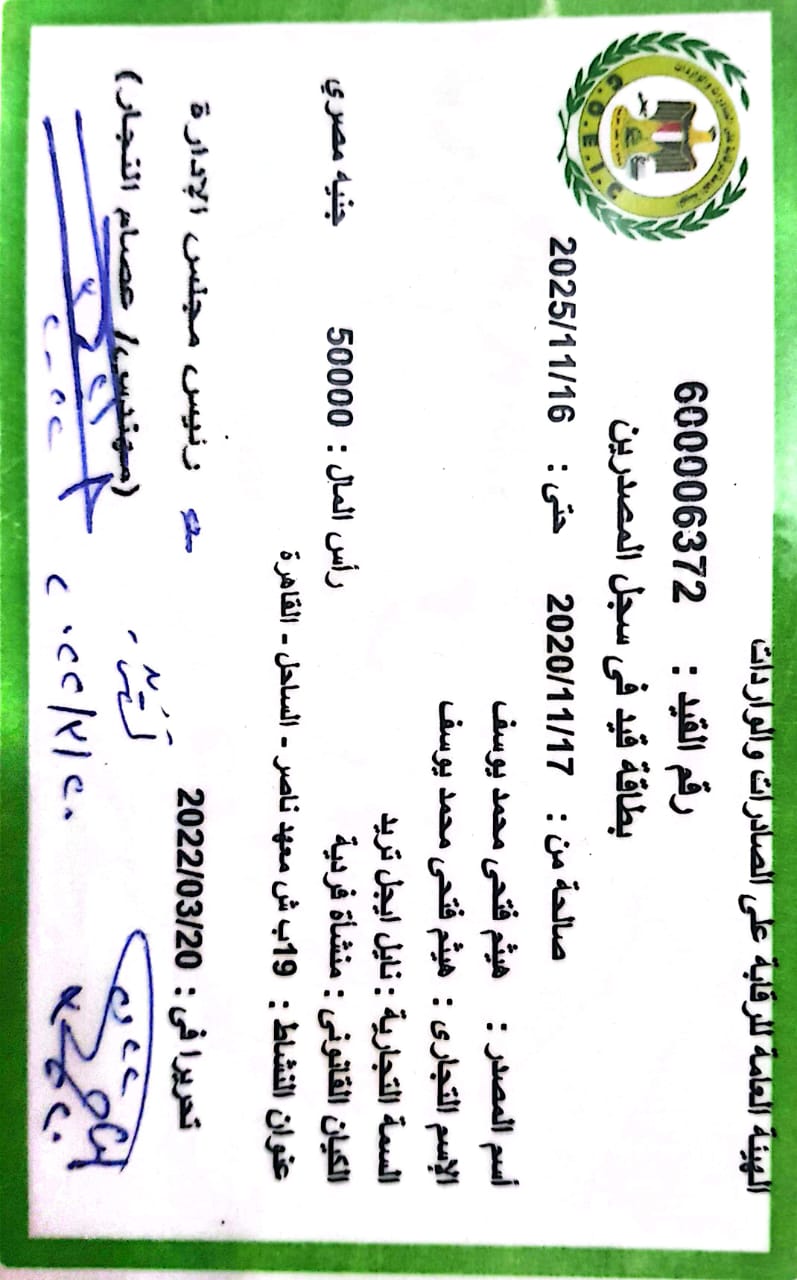 الهيئة العامة للرقابة على الصادرات والواردات
G.O.E.I.C
رقم القيد : 600006372
بطاقة قيد فى سجل المصدرين
صالحة من : 2020/11/17 حتى : 2025/11/16
أسم المصدر : هيثم فتحى محمد يوسف
الإسم التجارى : هيثم فتحى محمد يوسف
السمة التجارية : نايل ايجل تريد
الكيان القانونى : منشأة فردية رأس المال : 50000 جنيه مصري
عنوان النشاط : 19ب ش معهد ناصر - الساحل - القاهرة
تحريرا فى : 2022/03/20 رئيس مجلس الإدارة
(مهندس/ عصام النجار)